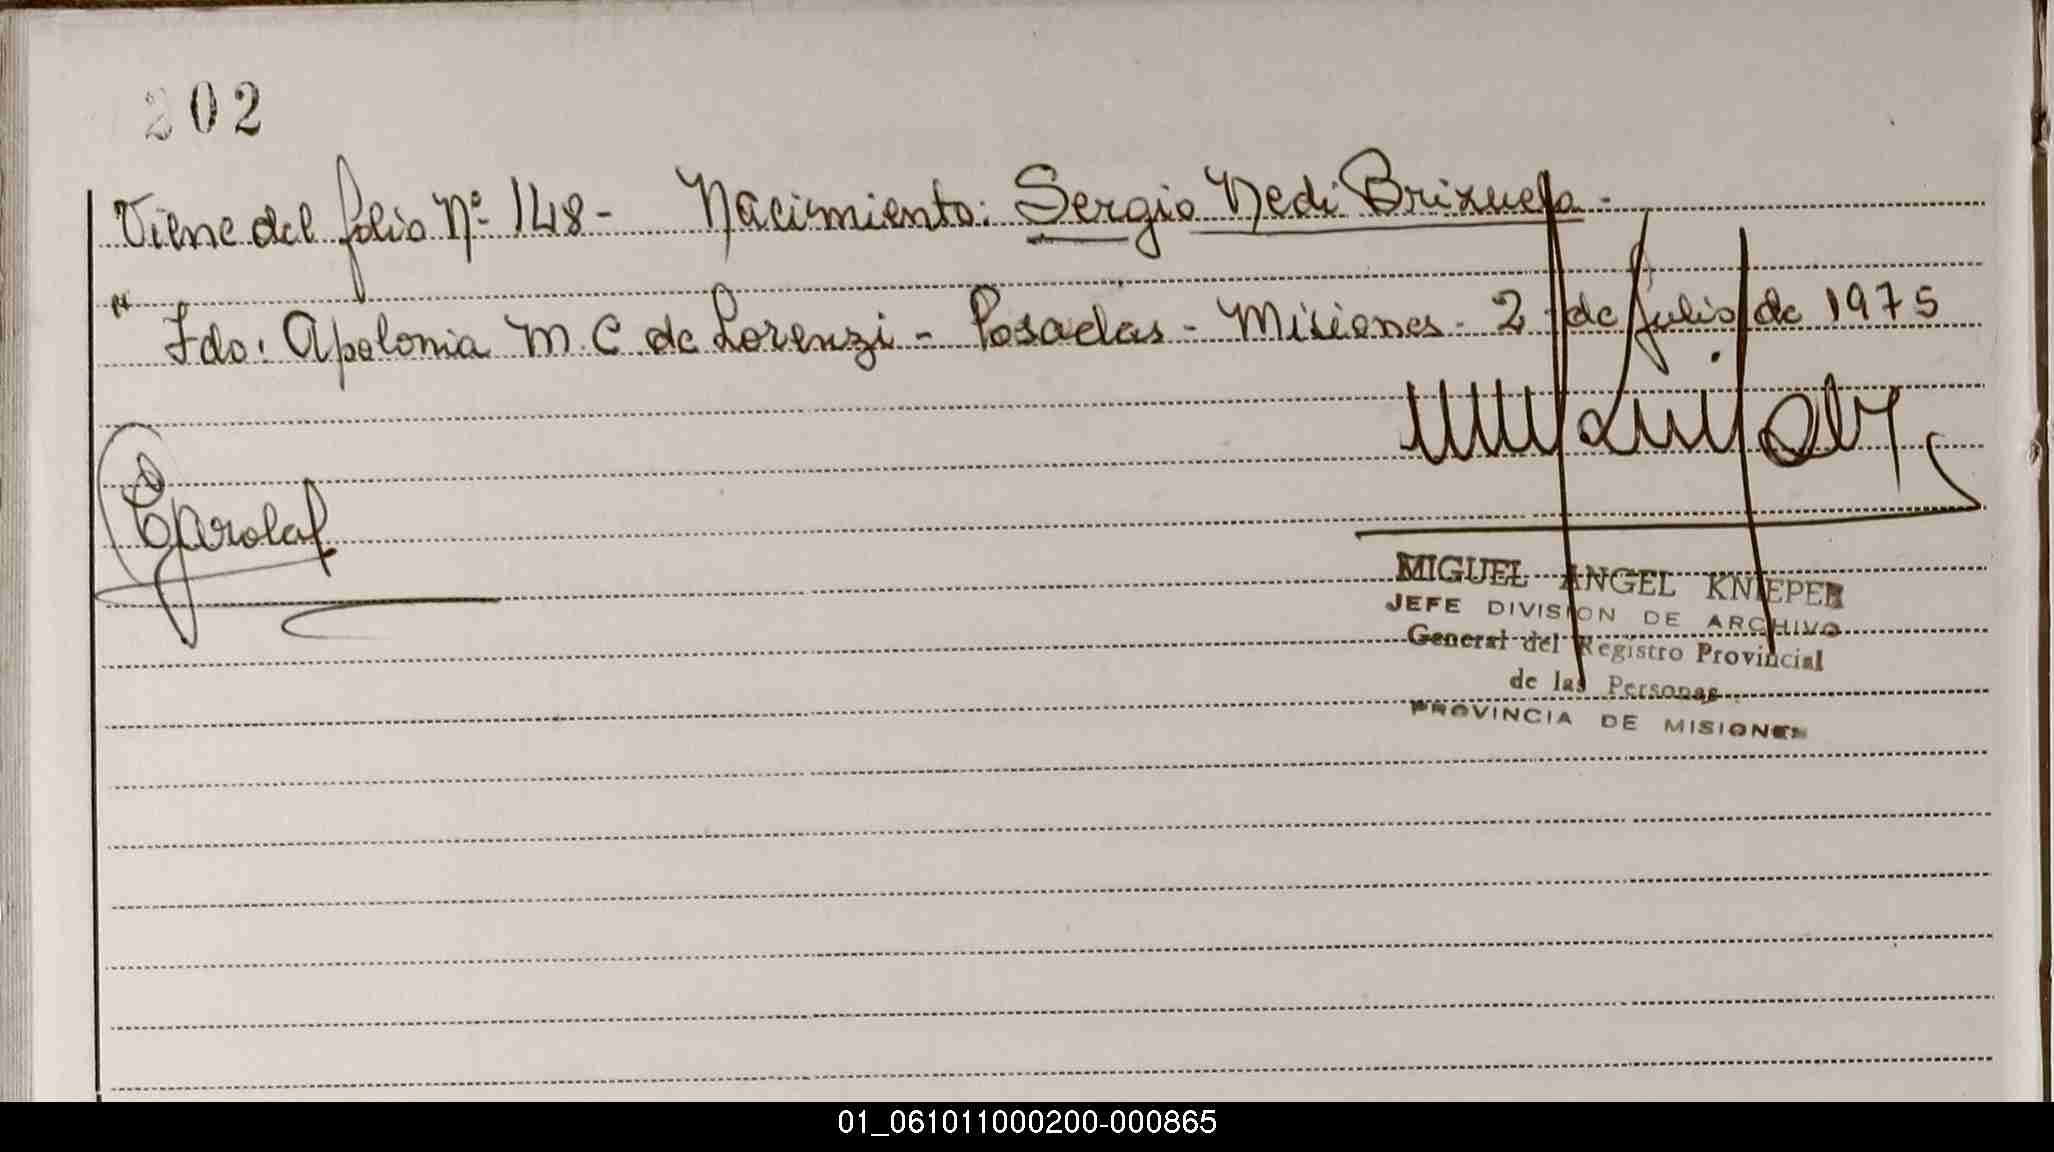 202
Viene del folio Nº 148 - Nacimiento: Sergio Nedi Brizuela.
" Fdo: Apolonia M. C. de Lorenzi - Posadas - Misiones - 2 de Julio de 1975
MIGUEL ANGEL KNIEPER
JEFE DIVISION DE ARCHIVO
General del Registro Provincial
de las Personas
PROVINCIA DE MISIONES
01_061011000200-000865